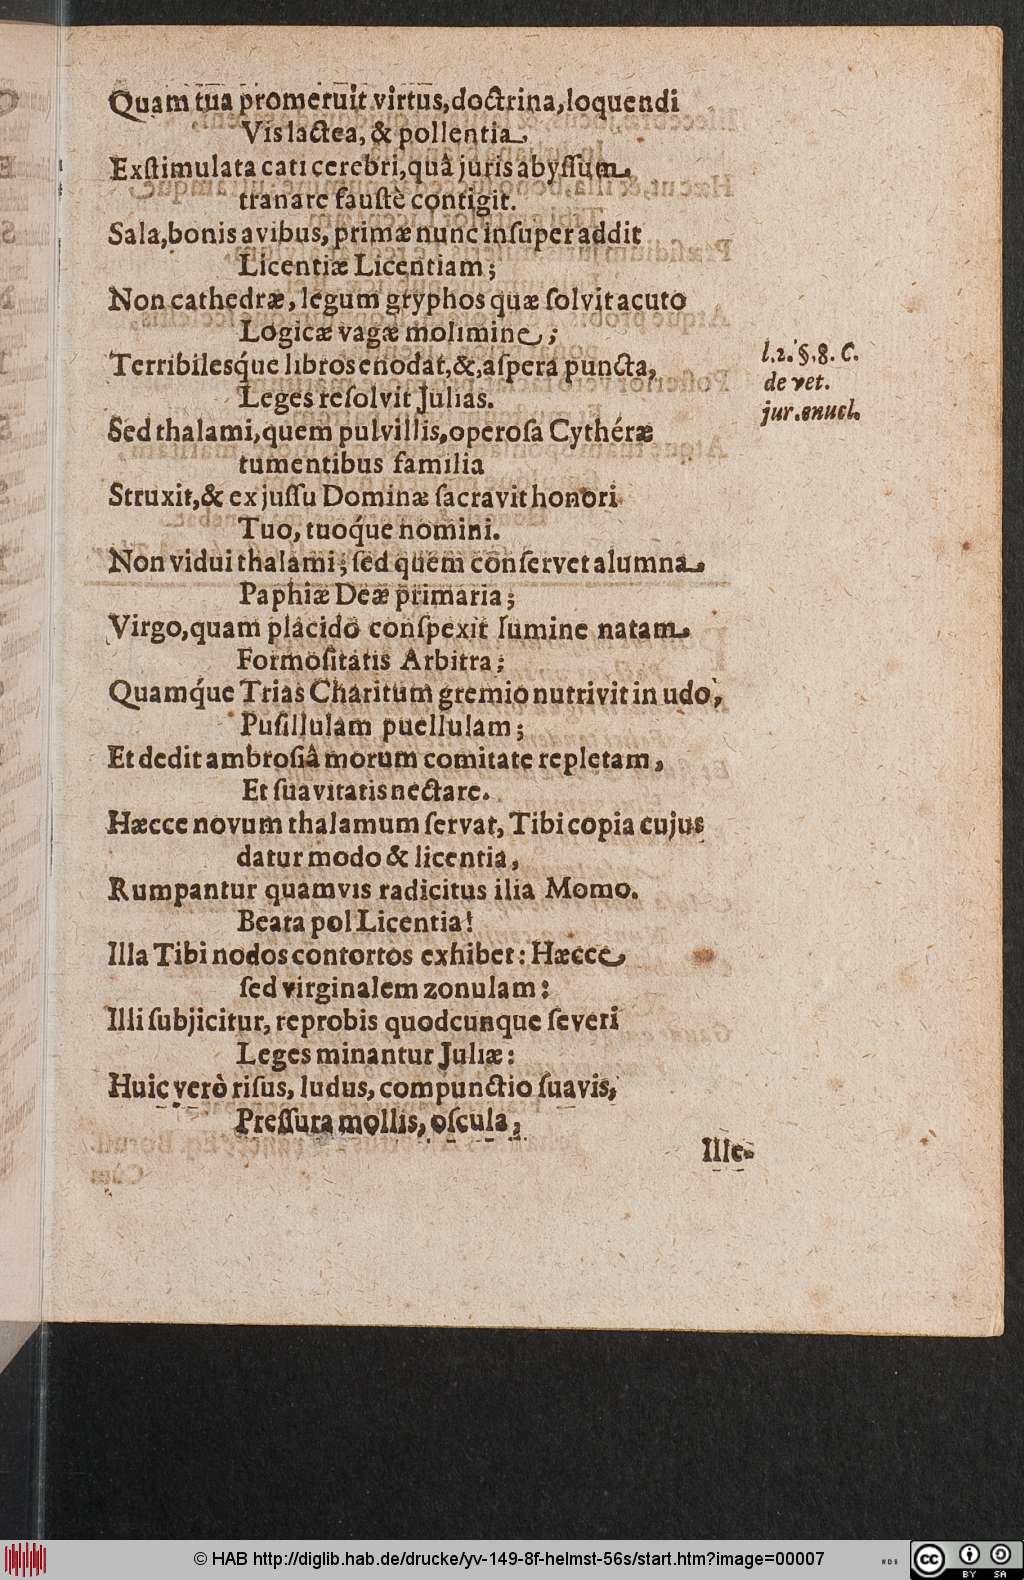 Quam tua promeruit virtus, doctrina, loquendi
Vis lactea, & pollentia
Exſtimulata cati cerebri, quâ juris abyſſum
tranare fauſtè contigit.
Sala, bonis avibus, primæ nunc inſuper addit
Licentiæ Licentiam;
Non cathedræ, legum gryphos quæ ſolvit acuto
Logicæ vagæ molimine;
Terribilesq́ue libros enodat, &, aſpera puncta,
Leges reſolvit Julias.
l. 2. §. 8. C.
de vet.
jur. enucl.
Sed thalami, quem pulvillis, operoſa Cythéræ
tumentibus familia
Struxit, & ex juſſu Dominæ ſacravit honori
Tuo, tuoq́ue nomini.
Non vidui thalami; ſed quem conſervet alumna
Paphiæ Deæ primaria;
Virgo, quam placido conſpexit lumine natam
Formoſitatis Arbitra;
Quamq́ue Trias Charitum gremio nutrivit in udo,
Puſillulam puellulam;
Et dedit ambroſiâ morum comitate repletam,
Et ſuavitatis nectare.
Hæcce novum thalamum ſervat, Tibi copia cujus
datur modo & licentia,
Rumpantur quamvis radicitus ilia Momo.
Beata pol Licentia!
Illa Tibi nodos contortos exhibet: Hæcce
ſed virginalem zonulam:
Illi ſubjicitur, reprobis quodcunque ſeveri
Leges minantur Juliæ:
Huic verò riſus, ludus, compunctio ſuavis,
Preſſura mollis, oſcula,
Ille
© HAB http://diglib.hab.de/drucke/yv-149-8f-helmst-56s/start.htm?image=00007
WDB
CC BY SA